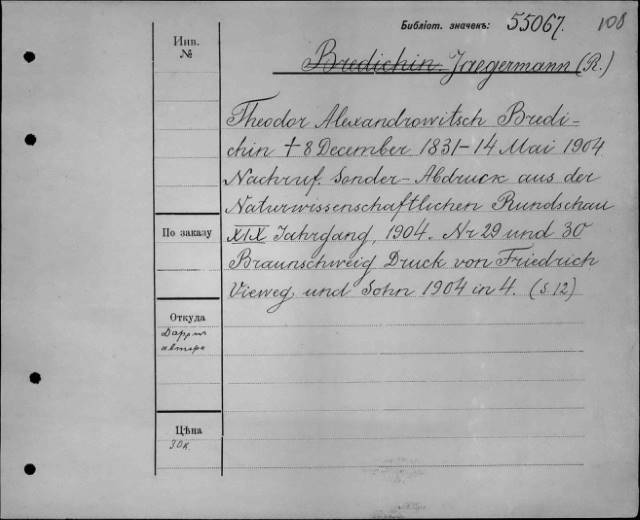 Библіот. значекъ: 55067. 108
Инв.
№
Bredichin. Jaegermann (R.)
Theodor Alexandrowitsch Bredi-
chin † 8 December 1831–14 Mai 1904
Nachruf. Sonder-Abdruck aus der
Naturwissenschaftlichen Rundschau
XIX Jahrgang, 1904. Nr 29 und 30
Braunschweig Druck von Friedrich
Vieweg und Sohn 1904 in 4. (S. 12)
По заказу
Откуда
автора
Цѣна
30 к.